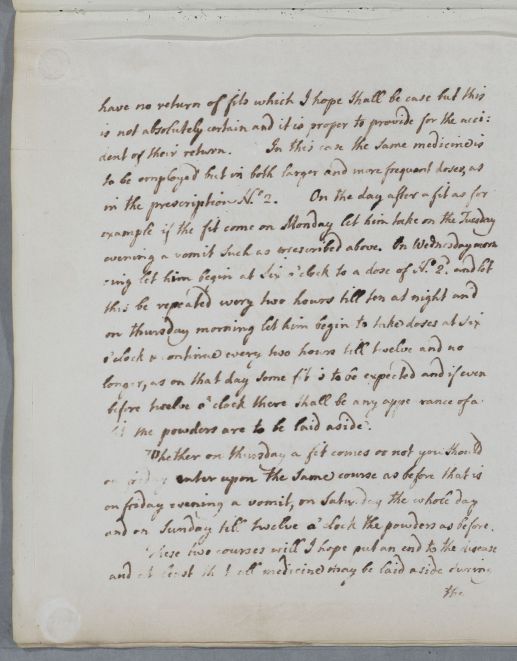 have no return of fits which I hope shall be case but this
is not absolutely certain and it is proper to provide for the acci:
dent of their return. In this case the same medicine is
to be employed but in both larger and more frequent doses, as
in the prescription No. 2. On the day after a fit as for
example if the fit come on Monday let him take on the Tuesday
evening a vomit such as prescribed above. On Wednesday morn
:ing let him begin at Six o'clock to a dose of No. 2. and let
this be repeated every two hours till ten at night and
on thursday morning let him begin to take doses at six
o'clock & continue every two hours till twelve and no
longer, as on that day some fit is to be expected and if even
before twelve o'clock there shall be any appearance of a
fit the powders are to be laid aside.
Whether on thursday a fit comes or not you should
on friday enter upon the same course as before that is
on friday evening a vomit, on Saturday the whole day
and on Sunday till twelve o'clock the powders as before.
These two courses will I hope put an end to the disease
and at least that all medicine may be laid aside during
the